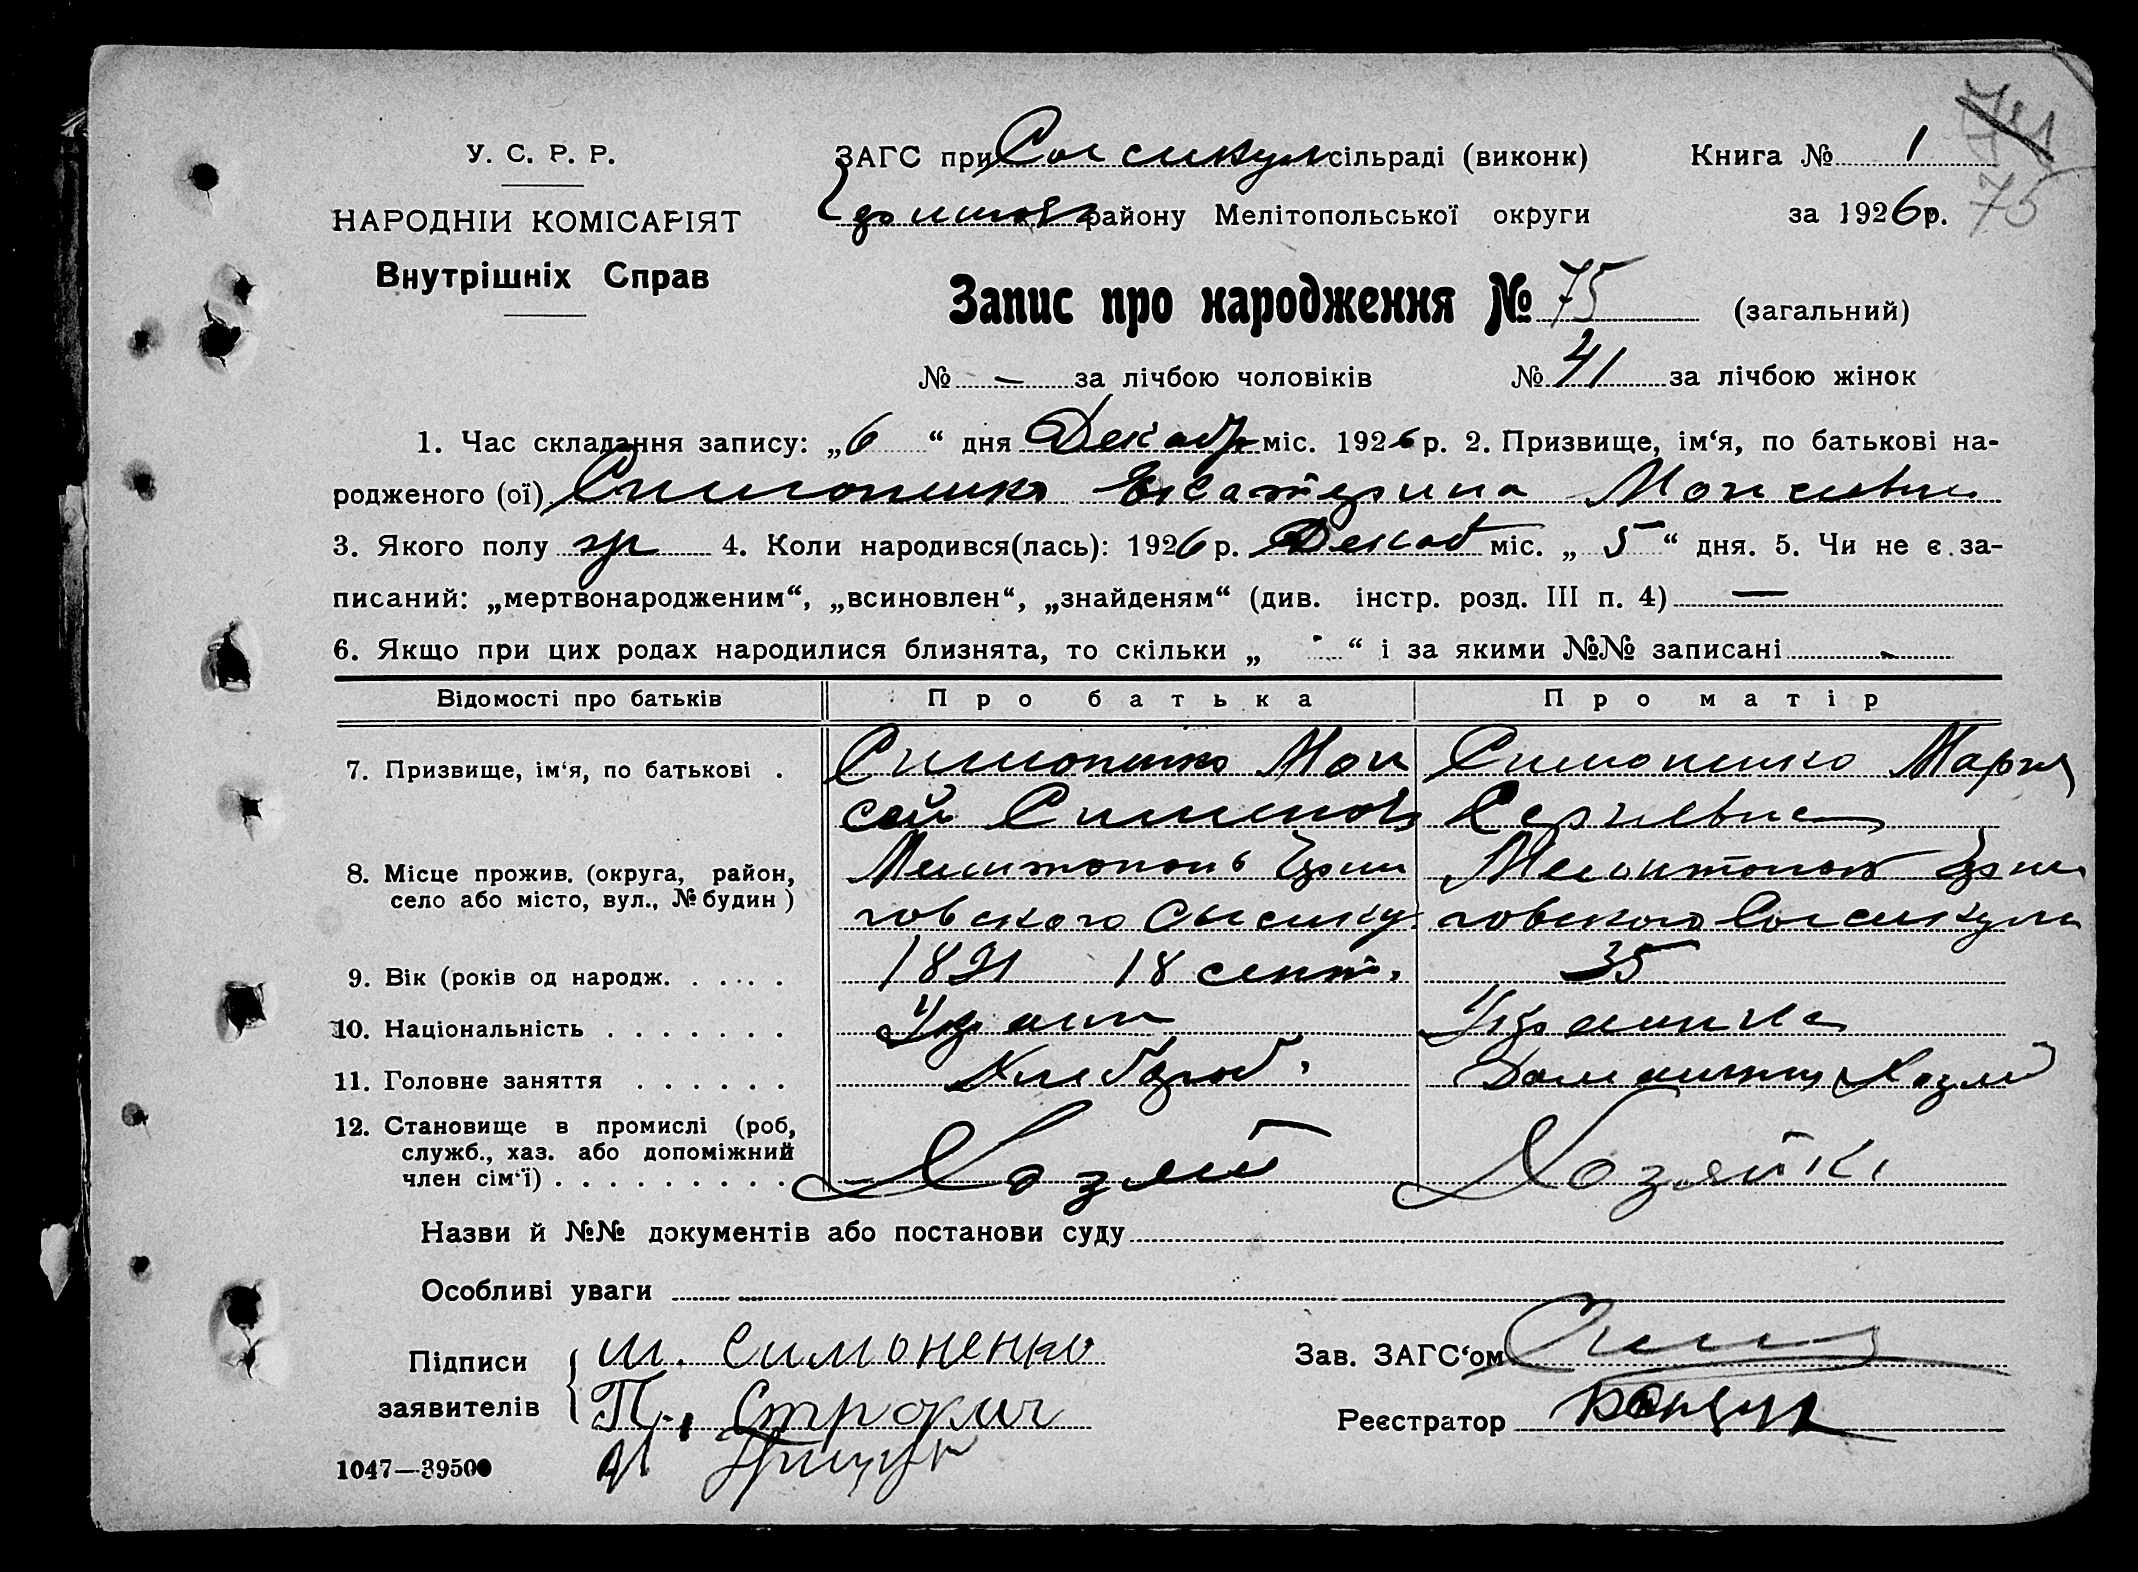 У. С. Р. Р.
НАРОДНІЙ КОМІСАРІЯТ
Внутрішніх Справ
ЗАГС при сільраді (виконк)
району Мелітопольської округи
Книга № 1
за 1926р.
74
75
Запис про народження № 75 (загальний)
№ – за лічбою чоловіків № 41 за лічбою жінок
1. Час складання запису: „6“ дня Декабр міс. 1926 р. 2. Призвище, ім‘я, по батькові на-
родженого (ої) Симоненко Екатерина Моисеевна
3. Якого полу 4. Коли народився(лась): 1926 р. Декаб міс. „5“ дня. 5. Чи не є за-
писаний: „мертвонародженим“, „всиновлен“, „знайденям“ (див. інстр. розд. III п. 4) —
6. Якщо при цих родах народилися близнята, то скільки „ - “ і за якими №№ записані -
Відомості про батьків Про батька Про матір
7. Призвище, ім‘я, по батькові . Симоненко Мои Симоненко Мария
сей Сергиевна
8. Місце прожив. (округа, район, Мелитополь Мелитополь
село або місто, вул., № будин ) говского говского
9. Вік (років од народж. . . . . . 18 сент. 35
10. Національність . . . . . . . Украин Украинка
11. Головне заняття . . . . . . Хлебороб. Домашняя
12. Становище в промислі (роб, Хозяй Хозяйка
служб., хаз. або допоміжний
член сім‘ї) . . . . . . . . . .
Назви й №№ документів або постанови суду
Особливі уваги
Підписи
заявителів
М. Симоненко
П.
Зав. ЗАГС‘ом
Реєстратор
1047—39500